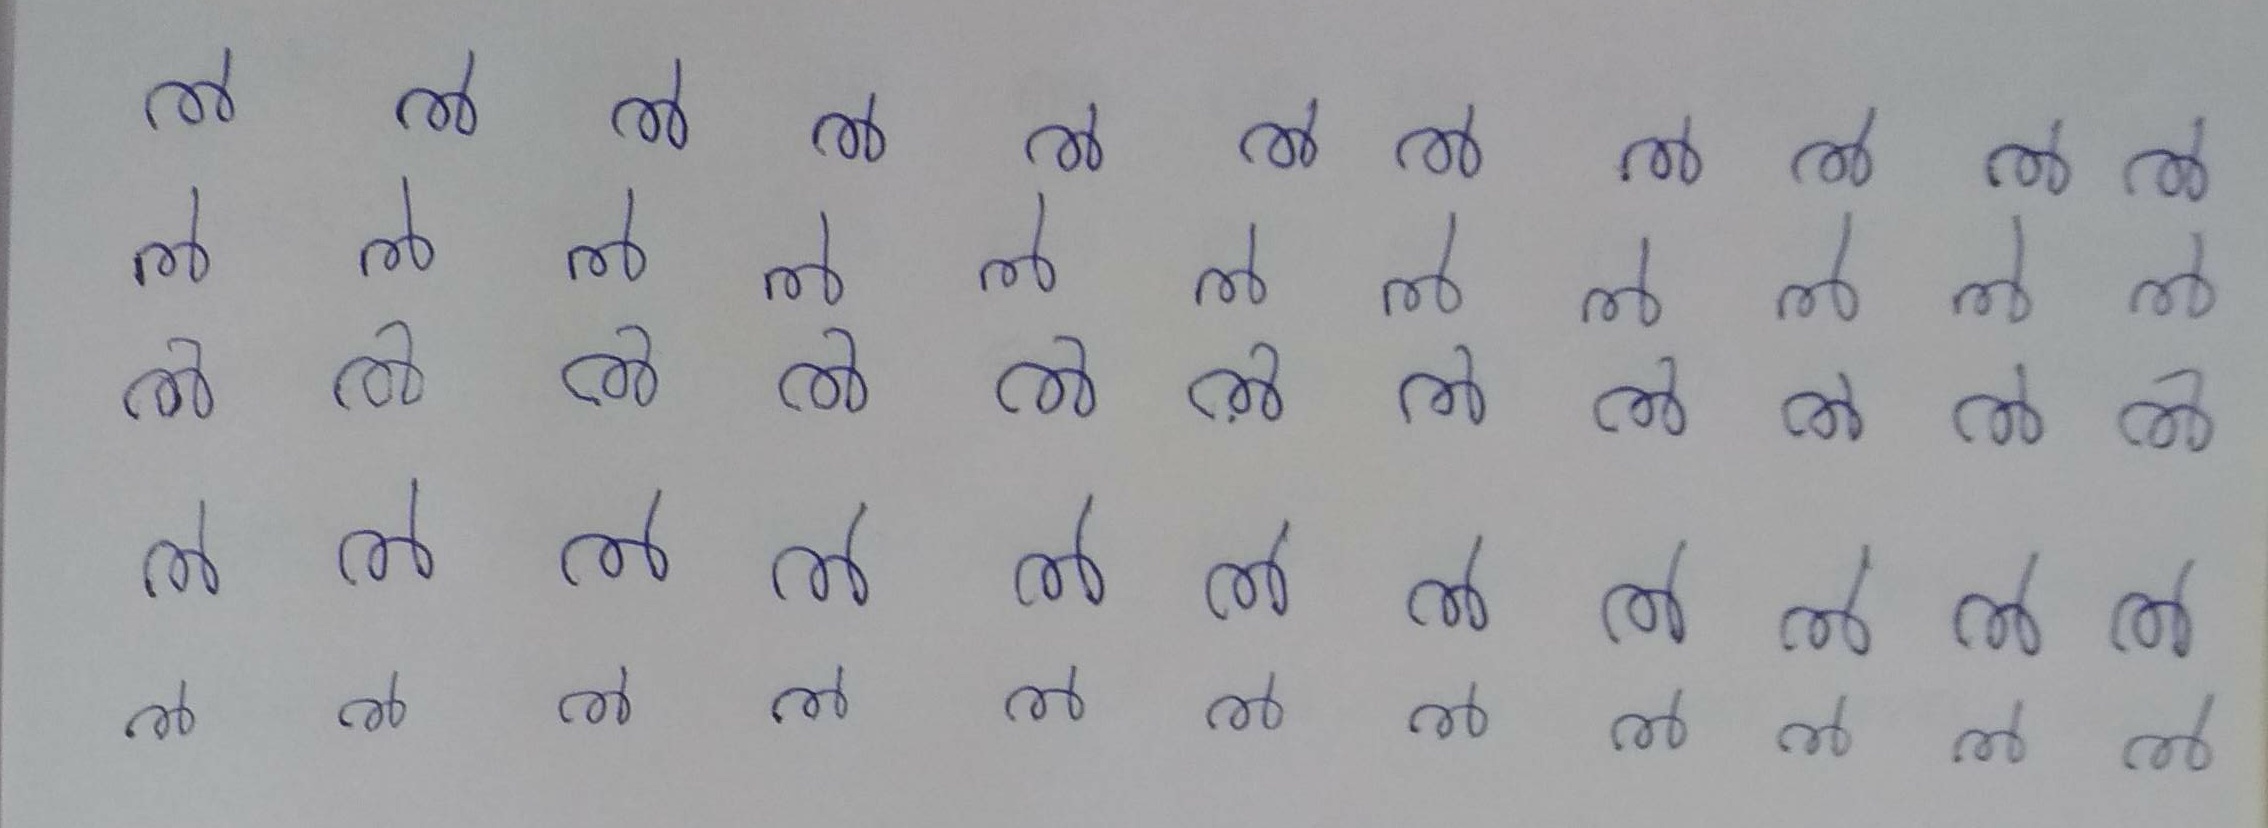 ൽ ൽ ൽ ൽ ൽ ൽ ൽ ൽ ൽ ൽ ൽ
ൽ ൽ ൽ ൽ ൽ ൽ ൽ ൽ ൽ ൽ ൽ
ൽ ൽ ൽ ൽ ൽ ൽ ൽ ൽ ൽ ൽ ൽ
ൽ ൽ ൽ ൽ ൽ ൽ ൽ ൽ ൽ ൽ ൽ
ൽ ൽ ൽ ൽ ൽ ൽ ൽ ൽ ൽ ൽ ൽ